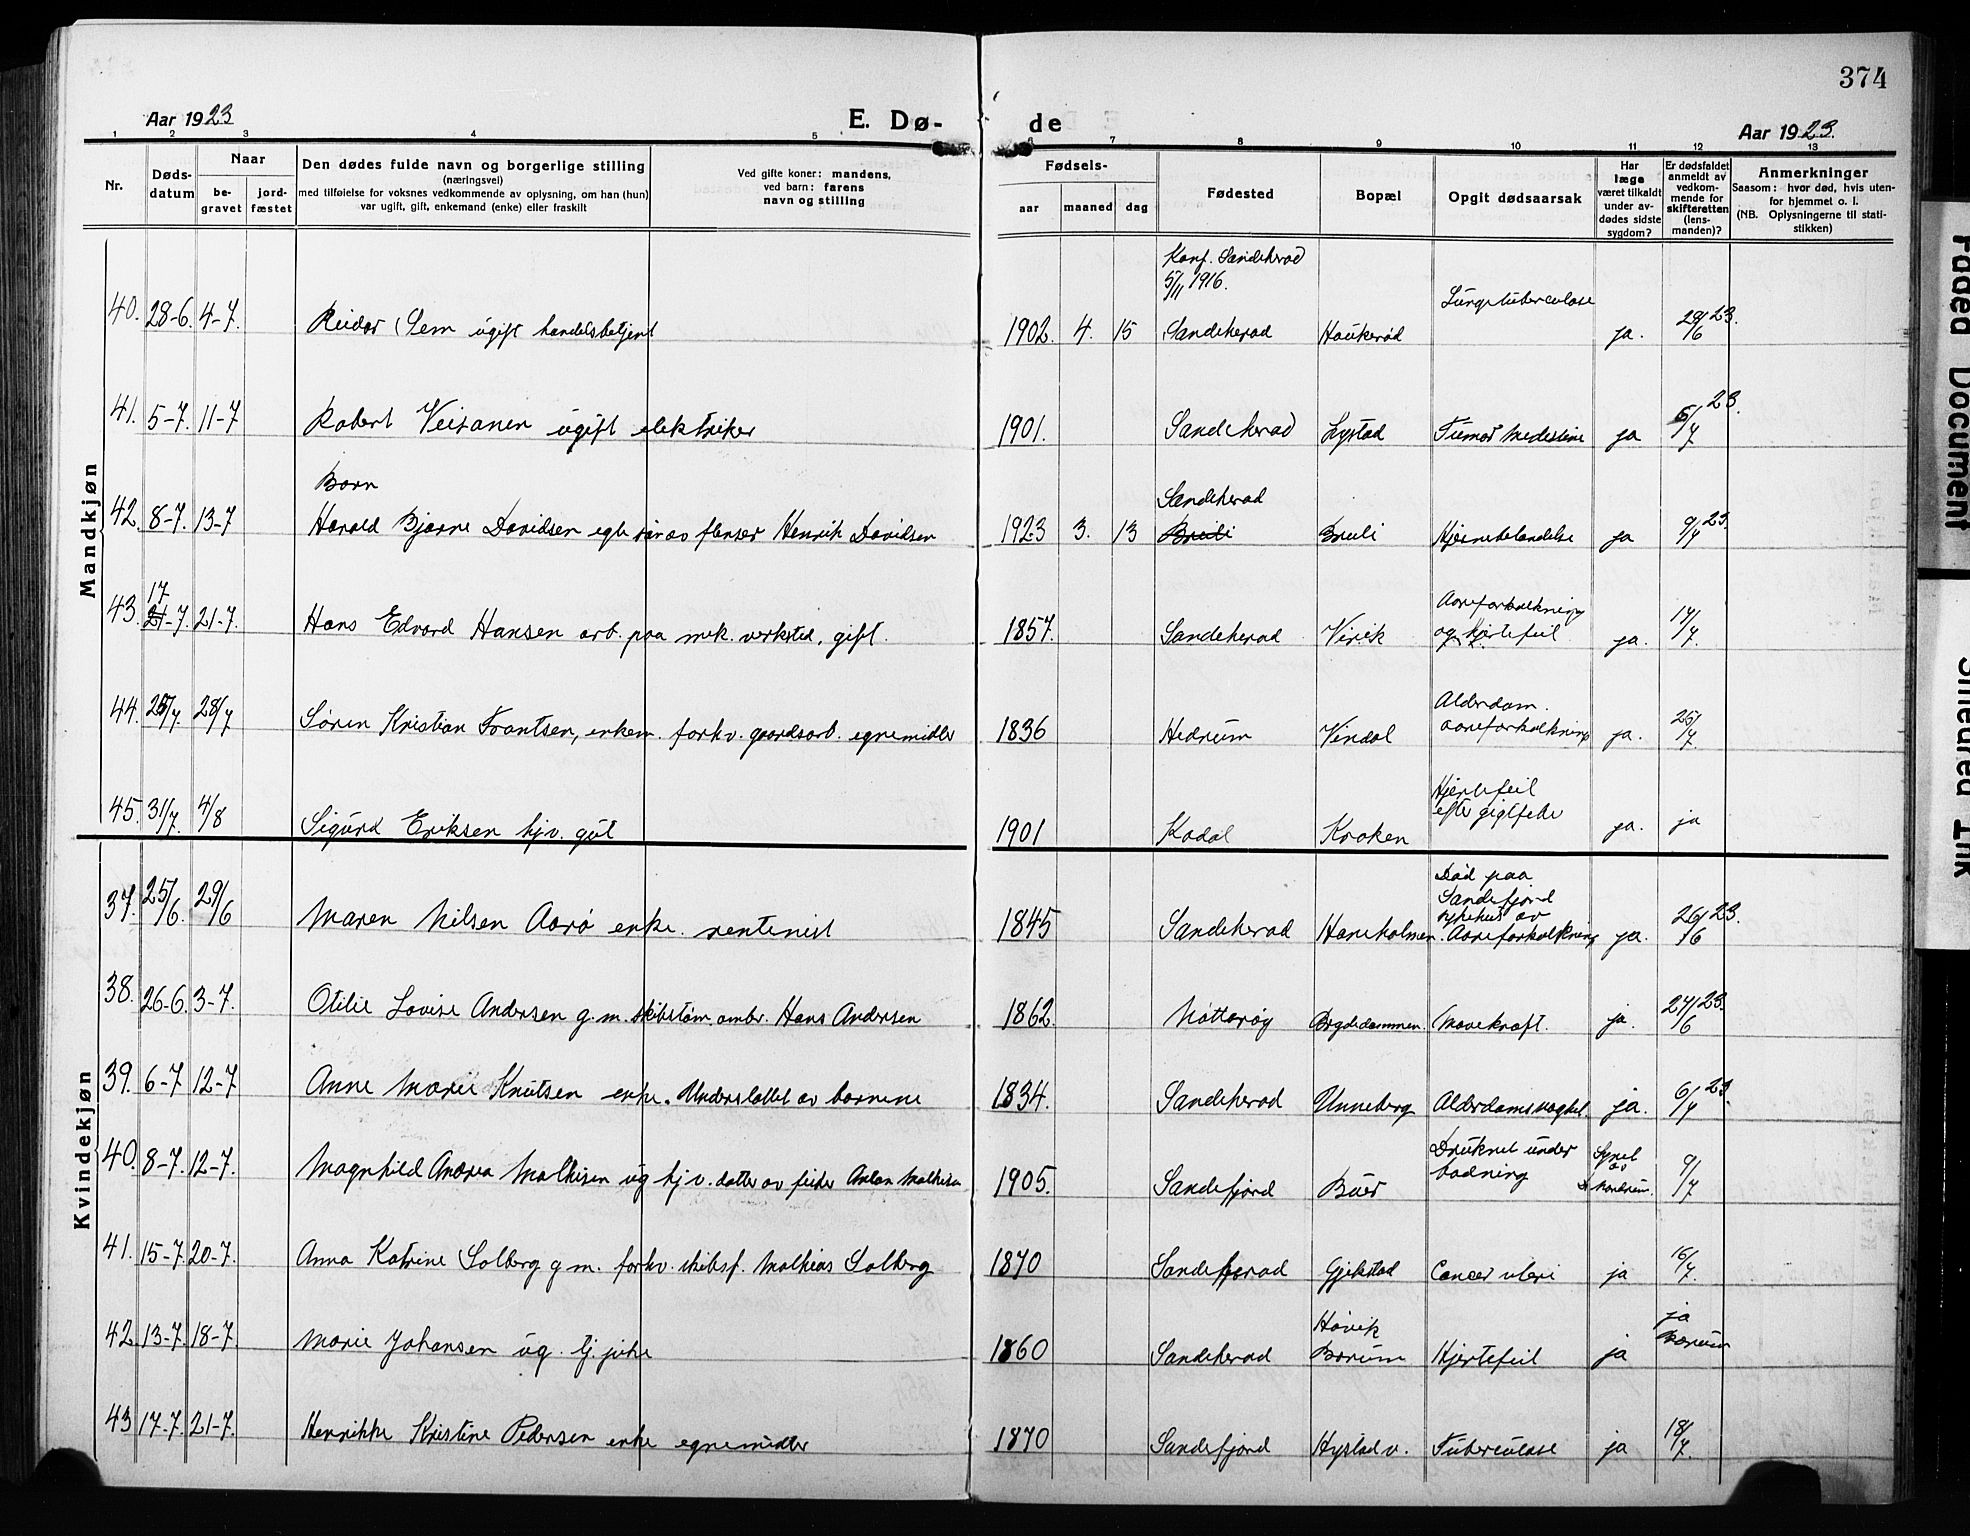 374
Aar 1923
E. Dø-
de
Aar 1923.
1 2 3 4 5 6 7 8 9 10 11 12 13
Nr.
Døds-
datum
Naar
be-
gravet
jord-
fæstet
Den dødes fulde navn og borgerlige stilling
(næringsvei)
med tilføielse for voksnes vedkommende av oplysning, om han (hun)
var ugift, gift, enkemand (enke) eller fraskilt
Ved gifte koner: mandens,
ved barn: farens
navn og stilling
Fødsels-
aar maaned dag
Fødested
Bopæl
Opgit dødsaarsak
Har
læge
været tilkaldt
under av-
dødes sidste
sygdom?
Er dødsfaldet
anmeldt av
vedkom-
mende for
skifteretten
(lens-
manden)?
Anmerkninger
Saasom: hvor død, hvis uten-
for hjemmet o. l.
(NB. Oplysningerne til stati-
stikken)
Mandkjøn
Konf. Sandeherad
5/11 1916.
40. 28-6. 4-7. Reidar Sem ugift handelsbetjent 1902. 4. 15 Sandeherad Haukerød Lungetuberculose ja. 29/6 23.
41. 5-7. 11-7 Robert Veisanen ugift elektriker 1901. Sandeherad Lystad Tumor Medistine ja 6/7 23.
Barn
42. 8-7. 13-7 Harald Bjarne Davidsen egte søn av flenser Henrik Davidsen 1923 3. 13 Sandeherad Breili Breili Hjernebetændelse ja 9/7 23.
17
43. 21-7. 21-7. Hans Edvard Hansen arb. paa mek. verksted, gift. 1857. Sandeherad Virik Aareforkalkning
og hjertefeil ja. 17/7.
44. 25/7. 28/7 Søren Kristian Frantsen, enkem. forhv. gaardsarb. egnemidler 1836 Hedrum Vindal Alderdom.
aareforkalkning ja. 25/7.
45. 31/7. 4/8 Sigurd Eriksen hjv. gut 1901 Kodal Kroken Hjertefeil
efter giktfeber ja. ja
Kvindekjøn
37. 25/6. 29/6 Maren Nilsen Aarø enke. rentenist 1845 Sandeherad Hareholmen. Død paa
Sandefjord
sykehus av
Aareforkalkning ja. 26/6 23.
38. 26-6. 3-7. Otilie Lovise Andersen g. m. skibstøm. ombr. Hans Andersen 1862. Nøtterøy Brydedammen. Mavekræft. ja. 27/6 23.
39. 6-7 12-7 Anne Marie Knutsen enke. Understøttet av barnene 1834. Sandeherad Unneberg Alderdomssvaghet. ja. 6/7 23.
40. 8-7. 12-7. Magnhild Andrea Mathisen ug hjv. datter av feier Anton Mathisen 1905. Sandefjord Buer Druknet under
badning Synet
av 9/7
41. 15-7. 20-7. Anna Katrine Solberg g m. forhv. skibsf. Mathias Solberg 1870 Sandeherad Gjekstad Cancer uteri ja 16/7.
42. 13-7. 18-7 Marie Johansen ug. tj. pike 1860 Sandeherad Høvik
Bærum Hjertefeil ja ja
Bærum
43 17-7. 21-7. Henrikke Kristine Pedersen enke egnemidler 1870 Sandefjord Hystad v. Tuberculose ja 18/7.
Faded Document
Smeared Ink